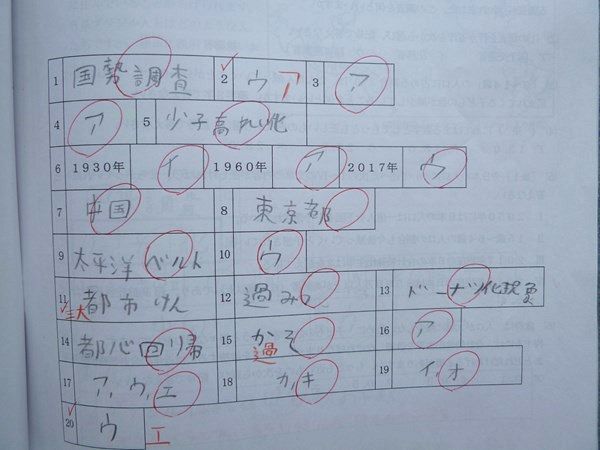 1 国勢調査 2 ウ ア 3 ア
4 ア 5 少子高れい化
6 1930年 イ 1960年 ア 2017年 ウ
7 中国 8 東京都
9 太平洋ベルト 10 ウ
11 大都市けん 12 過みつ 13 ドーナツ化現象
14 都心回帰 15 かそ 過 16 ア
17 ア,ウ,エ 18 カ,キ 19 イ,オ
20 ウ エ